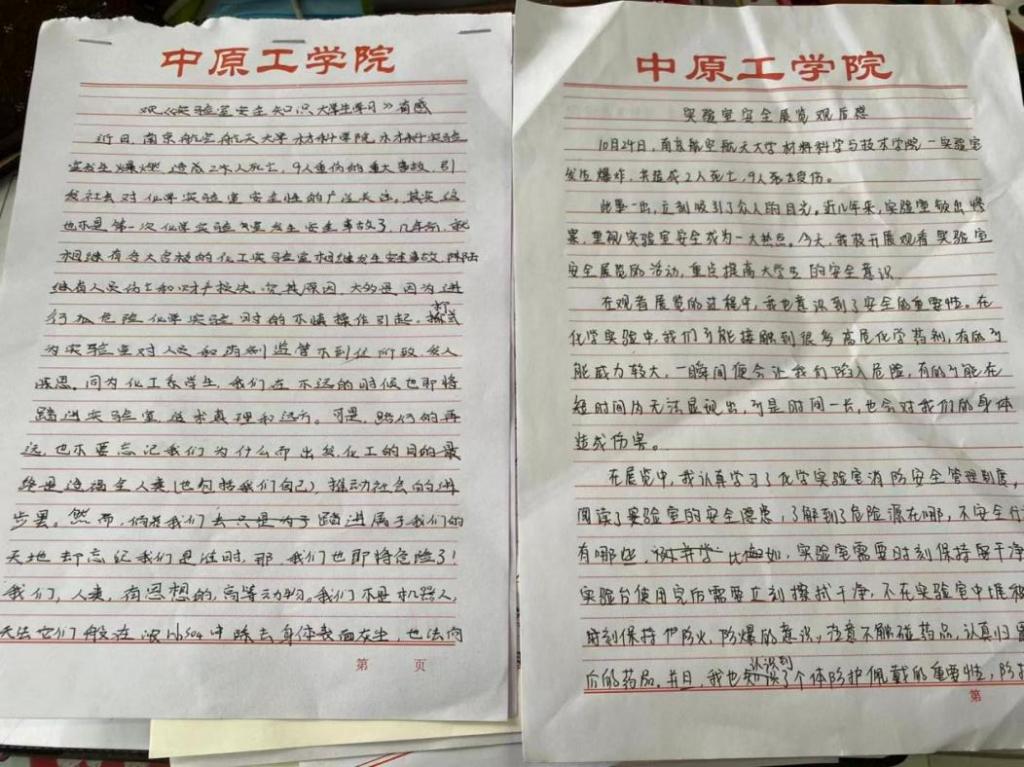 中原工学院
观《实验室安全知识大学生学习》有感
近日,南京航空航天大学材料科学院,材料实验
室发生爆燃,造成2人死亡,9人重伤的重大事故,引
发社会对化学实验室安全性的广泛关注,其实这
也不是第一次化学实验室发生安全事故了,几年前,就
相继有各大名校的化工实验室相继发生安全事故,陆陆
继有人员伤亡和财产损失。究其原因,大的是因为进
行危险化学实验时的不慎操作引起,
为实验室对人员和药剂监管不到位所致,发人
深思。同为化工系学生,我们在不远的时候也即将
踏进实验室,追求真理和远方。可是,路行的再
远,也不要忘记我们为什么而出发,化工的目的最
终是造福全人类(也包括我们自己),推动社会的进
步。然而,倘若我们去只是为了踏进属于我们的
天地却忘记我们是谁时,那我们也即将危险了!
我们,人类,有思想的,高等动物。我们不是机器人,
无法它们般在浓H₂SO₄中除去身体表面灰尘,也法向
第 页
中原工学院
实验室安全展览观后感
10月24日,南京航空航天大学材料科学与技术学院一实验室
发生爆炸,共造成2人死亡,9人受伤。
此事一出,立刻吸引了众人的目光。近几年来,实验室频出爆
案,重视实验室安全成为一大热点。今天,我校开展观看实验室
安全展览的活动,重点提高大学生的安全意识
在观看展览的过程中,我也意识到了安全的重要性。在
化学实验中,我们可能接触到很多高危化学药剂,有的可
能威力较大,一瞬间便会让我们陷入危险,有的可能在
短时间内无法显现出,可是时间一长,也会对我们的身体
造成伤害。
在展览中,我认真学习了化学实验室消防安全管理制度,
阅读了实验室的安全愿患,了解到了危险源在哪,不安全行
有哪些,比如,实验室需要时刻保持干净
实验台使用完后需要立刻擦拭干净,不在实验室中堆积
时刻保持防火,防爆的意识,注意不触碰药品,认真归置
的药品。并且,我也认识到了个体防护佩戴的重要性,防护
第